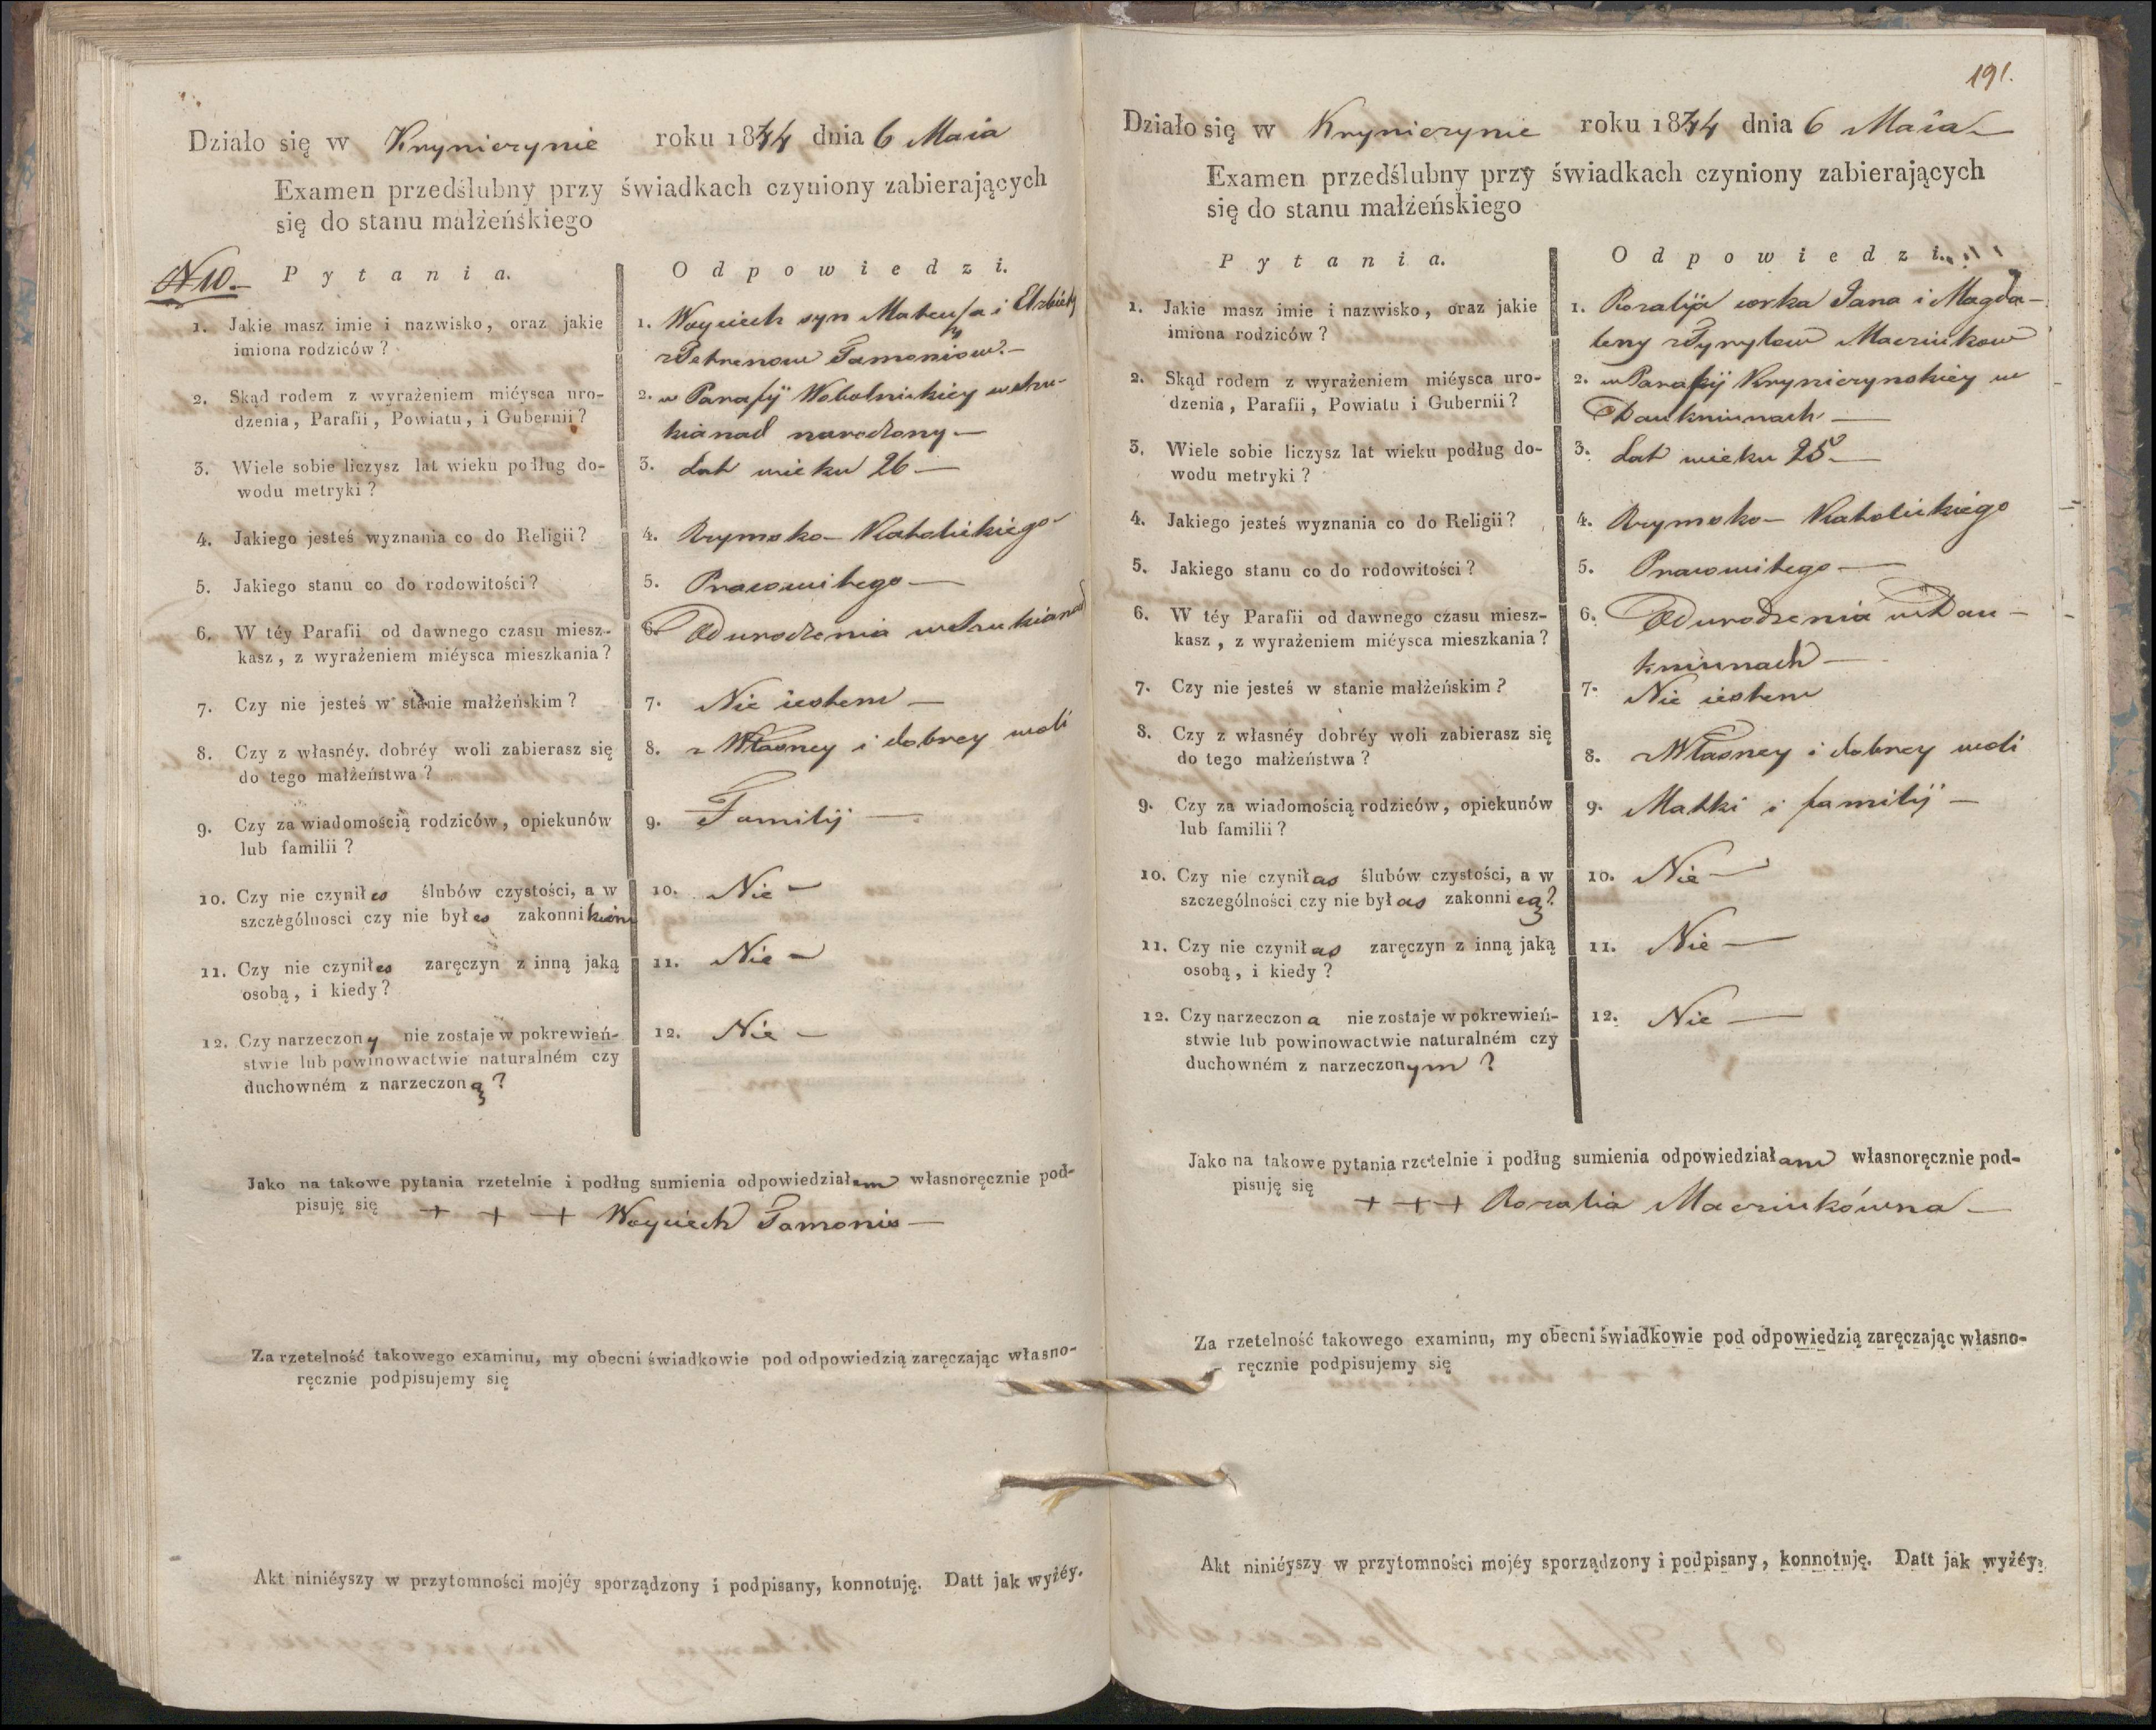 Działo się w Kryniczynie roku 1844 dnia 6 Maia
Examen przedślubny przy świadkach czyniony zabierających
się do stanu małżeńskiego
N 10.
Pytania.
Odpowiedzi.
1. Jakie masz imie i nazwisko, oraz jakie
imiona rodziców?
1. Woyciech syn Mateusza i Elzbiety
z Petrenow Tamoniow.
2. Skąd rodem z wyrażeniem miéysca uro-
dzenia, Parafii, Powiatu, i Gubernii?
2. w Parafij Wobolnickiey
narodzony
3. Wiele sobie liczysz lat wieku podług do-
wodu metryki?
3. Lat wieku 26
4. Jakiego jesteś wyznania co do Religii?
4. Rzymsko-Katolickiego
5. Jakiego stanu co do rodowitości?
5. Pracowitego
6. W téy Parafii od dawnego czasu miesz-
kasz, z wyrażeniem miéysca mieszkania?
6. Od urodzenia
7. Czy nie jesteś w stanie małżeńskim?
7. Nie iestem
8. Czy z własnéy, dobréy woli zabierasz się
do tego małżeństwa?
8. z Własney i dobrey woli
9. Czy za wiadomością rodziców, opiekunów
lub familii?
9. Familij
10. Czy nie czyniłes ślubów czystości, a w
szczególnosci czy nie byłes zakonnikiem
10. Nie
11. Czy nie czyniłes zaręczyn z inną jaką
osobą, i kiedy?
11. Nie
12. Czy narzeczony nie zostaje w pokrewień-
stwie lub powinowactwie naturalném czy
duchowném z narzeczoną?
12. Nie
Jako na takowe pytania rzetelnie i podług sumienia odpowiedziałem własnoręcznie pod-
pisuję się + + + Woyciech Tamonis
Za rzetelność takowego examinu, my obecni świadkowie pod odpowiedzią zaręczając własno-
ręcznie podpisujemy się
Akt niniéyszy w przytomności mojéy sporządzony i podpisany, konnotuję. Datt jak wyżéy.
191.
Działo się w Kryniczynie roku 1844 dnia 6 Maia
Examen przedślubny przy świadkach czyniony zabierających
się do stanu małżeńskiego
Pytania.
Odpowiedzi.
1. Jakie masz imie i nazwisko, oraz jakie
imiona rodziców?
1. Rozalija corka Jana i Magda-
leny z Macziukow
2. Skąd rodem z wyrażeniem miéysca uro-
dzenia, Parafii, Powiatu i Gubernii?
2. w Parafij Kryniczynskiey w
Daukniunach
3. Wiele sobie liczysz lat wieku podług do-
wodu metryki?
3. Lat wieku 25
4. Jakiego jesteś wyznania co do Religii?
4. Rzymsko-Katolickiego
5. Jakiego stanu co do rodowitości?
5. Pracowitego
6. W téy Parafii od dawnego czasu miesz-
kasz, z wyrażeniem miéysca mieszkania?
6. Od urodzenia w Dau-
kniunach
7. Czy nie jesteś w stanie małżeńskim?
7. Nie iestem
8. Czy z własnéy dobréy woli zabierasz się
do tego małżeństwa?
8. z Własney i dobrey woli
9. Czy za wiadomością rodziców, opiekunów
lub familii?
9. Matki i familij
10. Czy nie czyniłas ślubów czystości, a w
szczególności czy nie byłas zakonnicą?
10. Nie
11. Czy nie czyniłas zaręczyn z inną jaką
osobą, i kiedy?
11. Nie
12. Czy narzeczona nie zostaje w pokrewień-
stwie lub powinowactwie naturalném czy
duchowném z narzeczonym?
12. Nie
Jako na takowe pytania rzetelnie i podług sumienia odpowiedziałam własnoręcznie pod-
pisuję się + + + Rozalia Macziukówna
Za rzetelność takowego examinu, my obecni świadkowie pod odpowiedzią zaręczając własno-
ręcznie podpisujemy się
Akt niniéyszy w przytomności mojéy sporządzony i podpisany, konnotuję. Datt jak wyżéy.